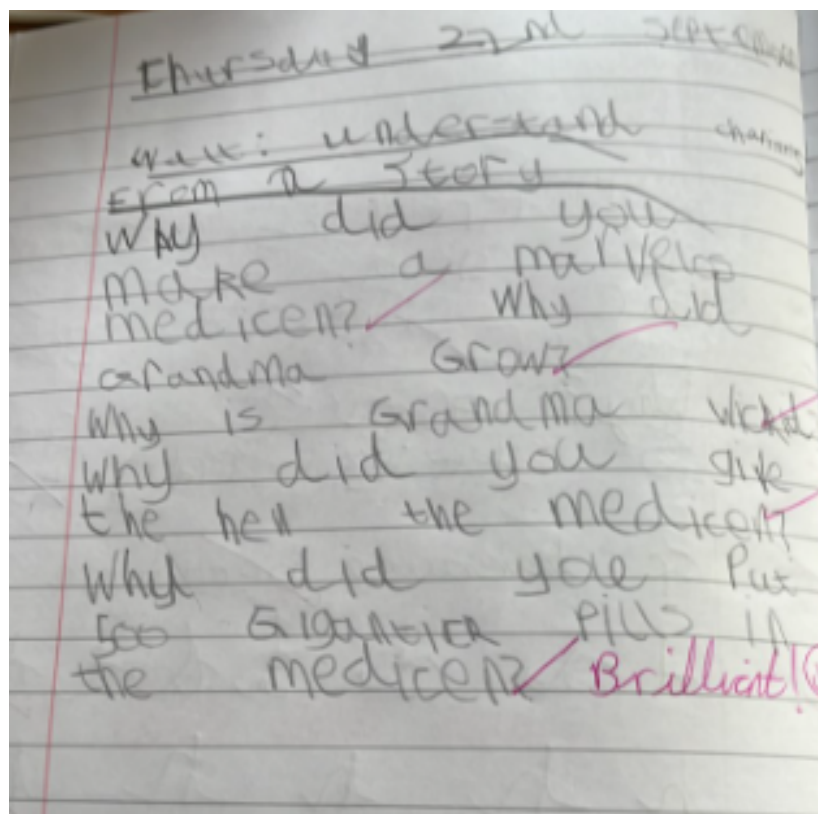 Thursday 22nd September
Walt: understand
from a story
Why did you
make a marvelos
medicen? Why did
Grandma Grow?
Why is Grandma
Why did you give
the hen the medicen?
Why did yoe Put
500 Gigantick Pills in
the medicen? Brilliant!